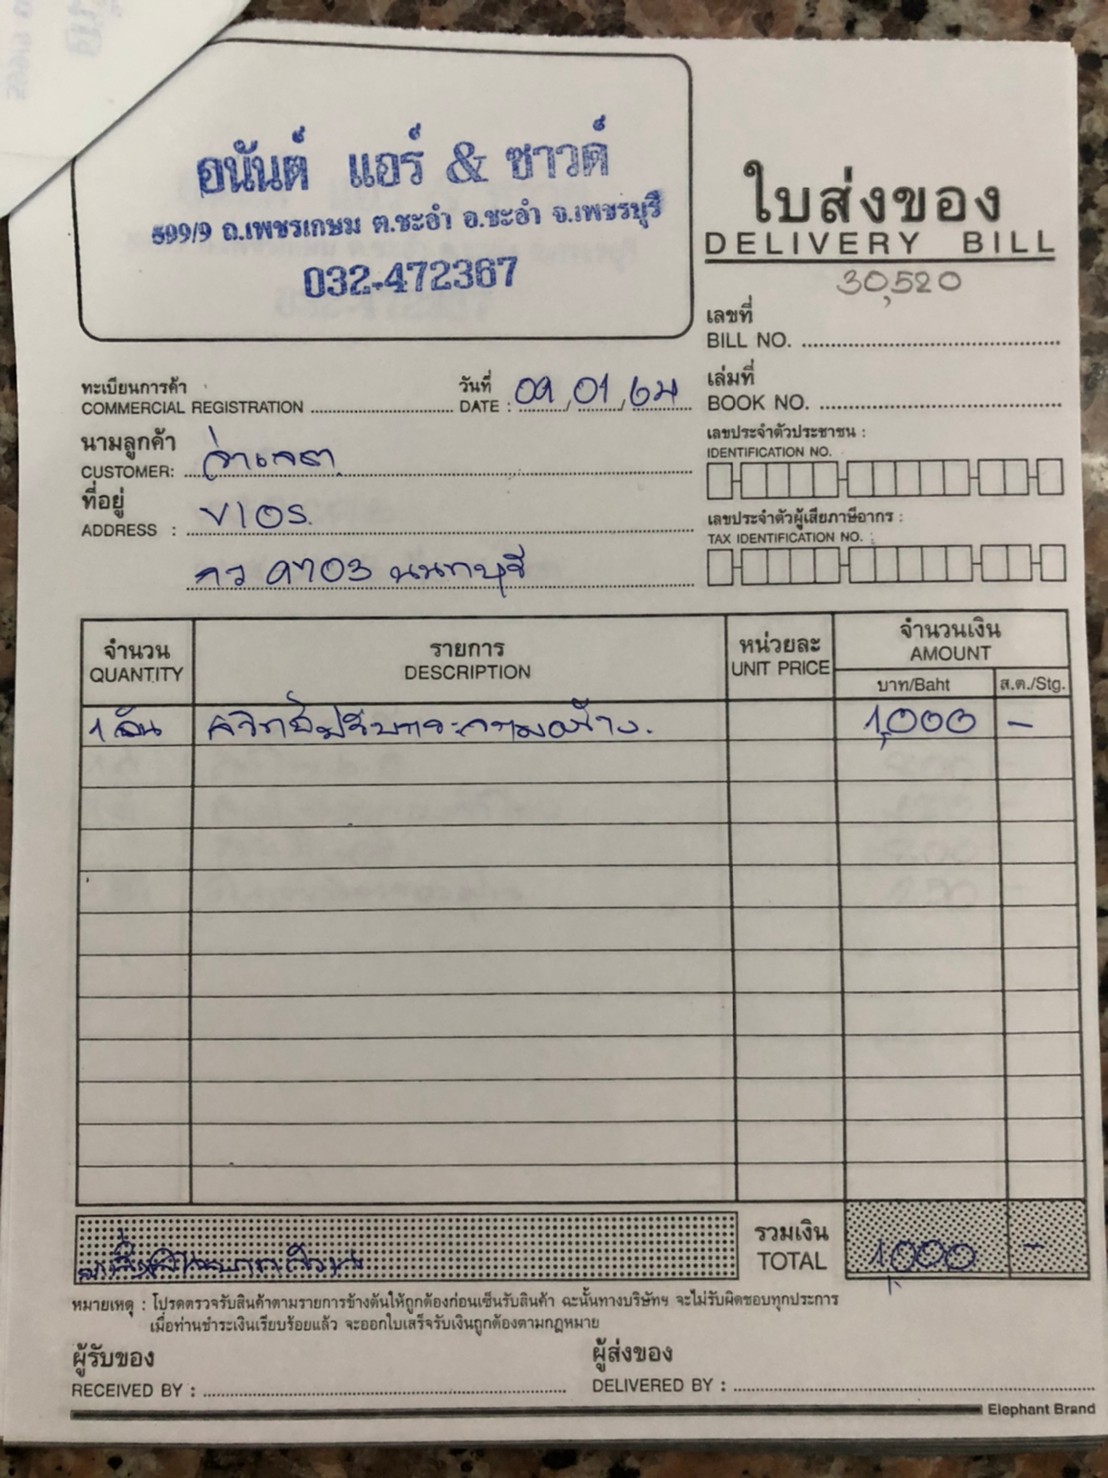 อนันต์ แอร์ & ซาวด์
599/9 ถ.เพชรเกษม ต.ชะอำ อ.ชะอำ จ.เพชรบุรี
032-472367
ใบส่งของ
DELIVERY BILL
30,520
เลขที่
BILL NO.
ทะเบียนการค้า
COMMERCIAL REGISTRATION
วันที่
DATE : 09/01/64
เล่มที่
BOOK NO.
นามลูกค้า
CUSTOMER:
เลขประจำตัวประชาชน :
IDENTIFICATION NO.
ที่อยู่
ADDRESS : VIOS
เลขประจำตัวผู้เสียภาษีอากร :
TAX IDENTIFICATION NO. :
กว 9703 นนทบุรี
จำนวน
QUANTITY
รายการ
DESCRIPTION
หน่วยละ
UNIT PRICE
จำนวนเงิน
AMOUNT
บาท/Baht
ส.ต./Stg.
1 อัน สวิทช์ปรับกระจกมองข้าง. 1,000 -
หนึ่งพันบาทถ้วน
รวมเงิน
TOTAL
1,000 -
หมายเหตุ : โปรดตรวจรับสินค้าตามรายการข้างต้นให้ถูกต้องก่อนเซ็นรับสินค้า ฉะนั้นทางบริษัทฯ จะไม่รับผิดชอบทุกประการ
เมื่อท่านชำระเงินเรียบร้อยแล้ว จะออกใบเสร็จรับเงินถูกต้องตามกฎหมาย
ผู้รับของ
RECEIVED BY :
ผู้ส่งของ
DELIVERED BY :
Elephant Brand